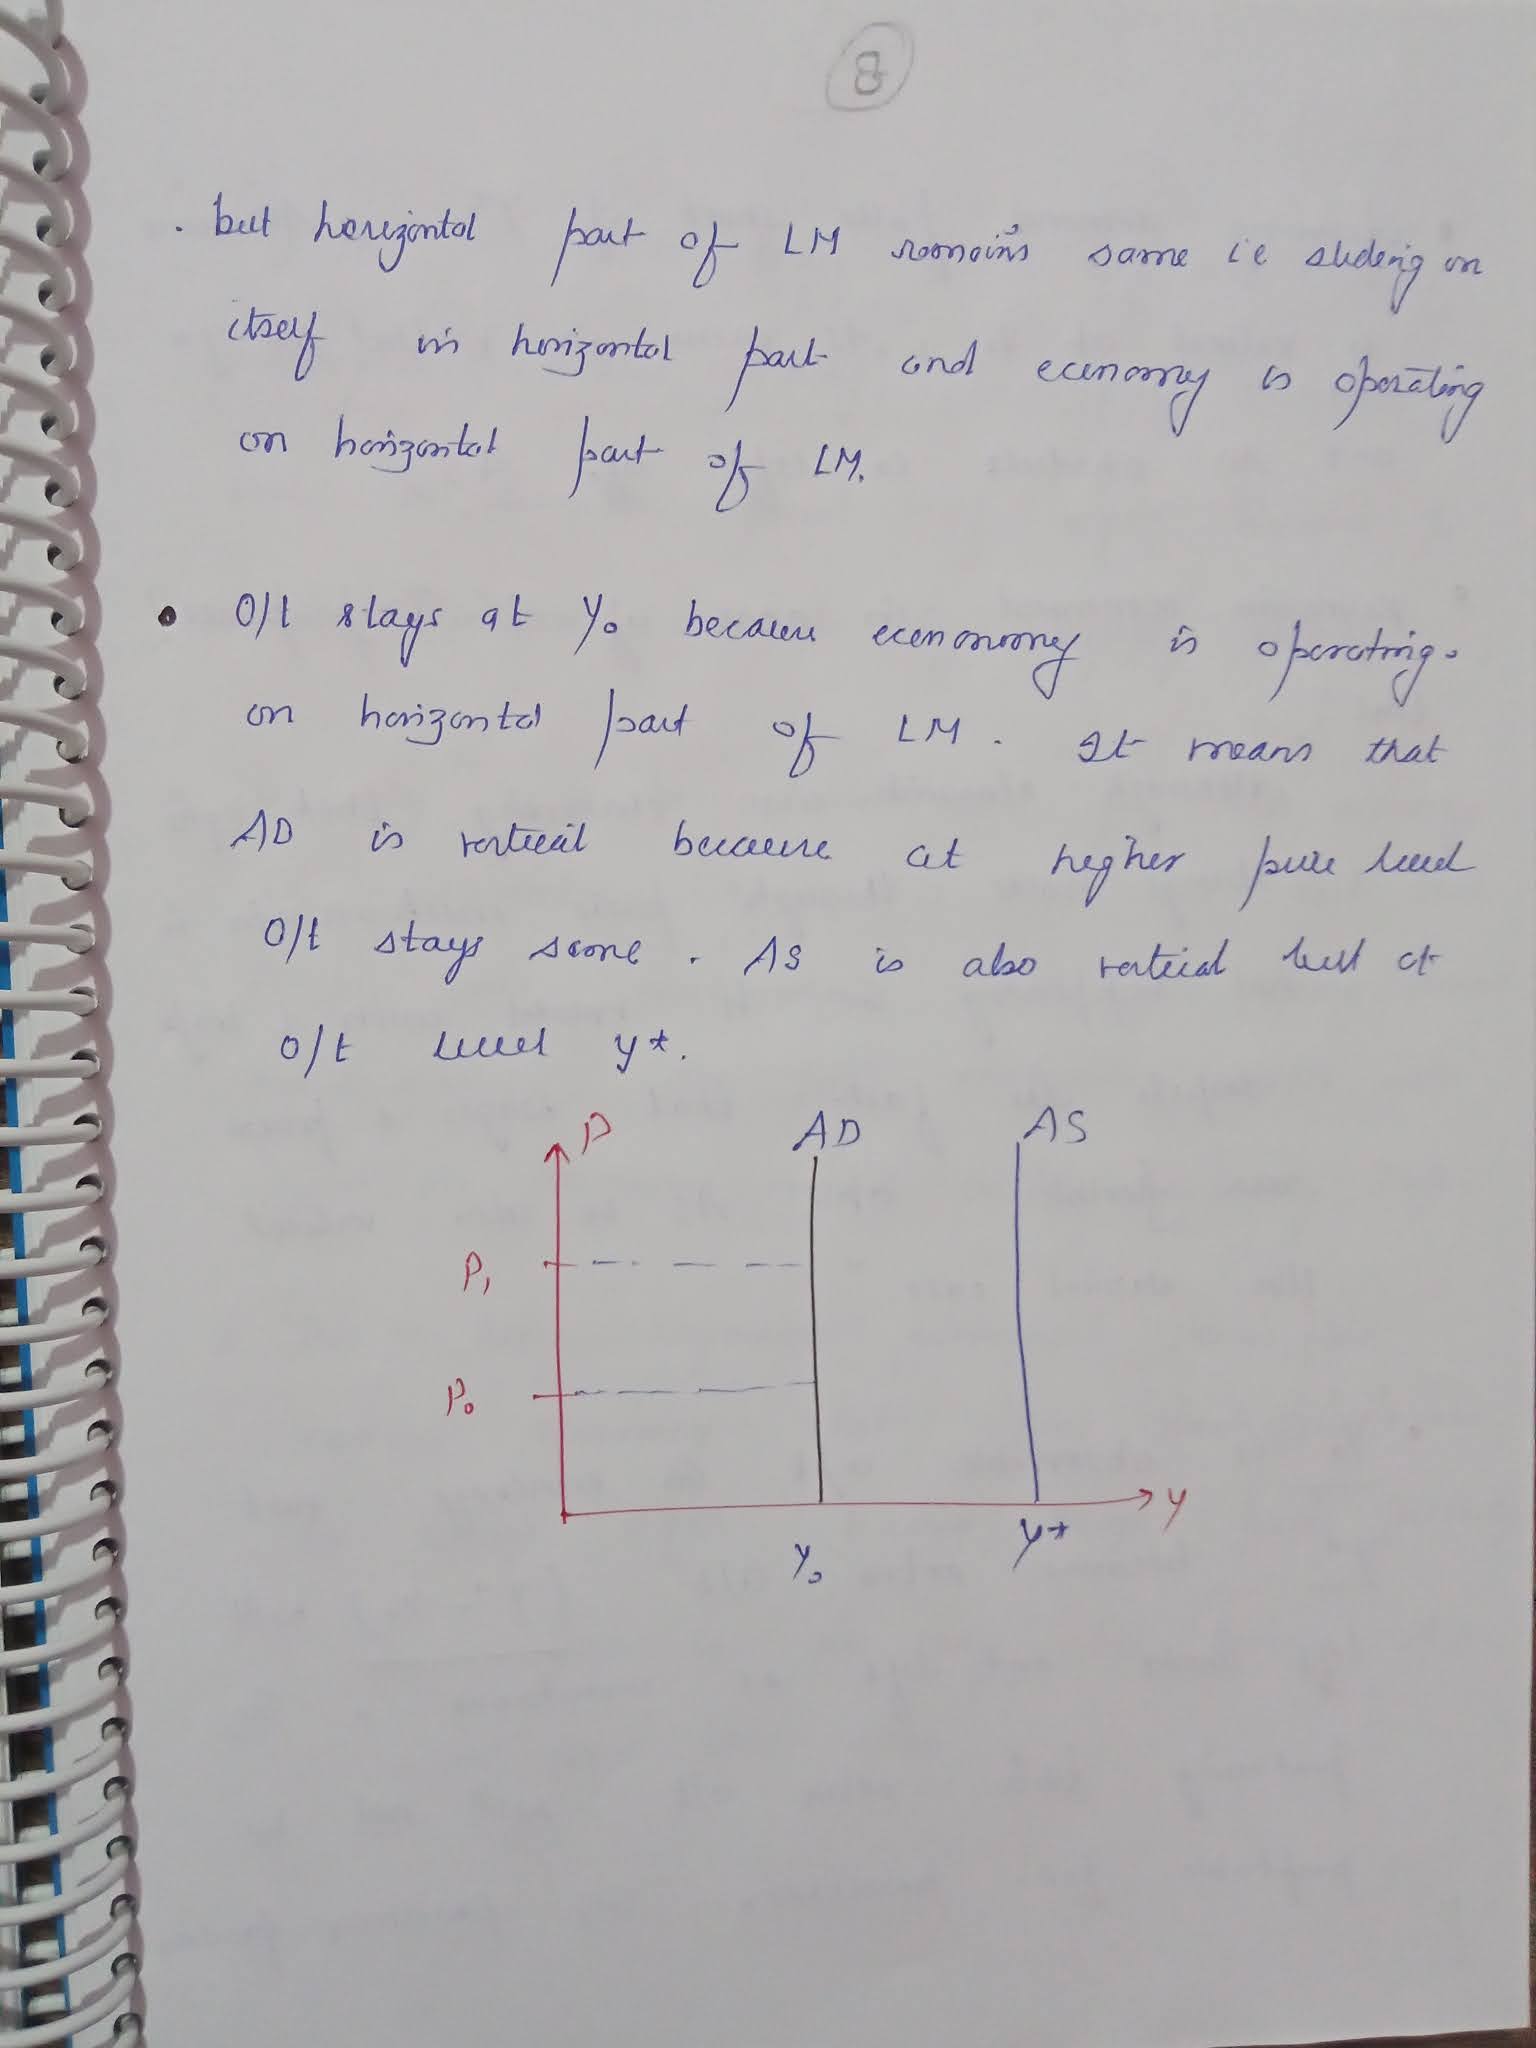 8
. but horizontal part of LM remains same ie sliding on
itself in horizontal part and economy is operating
on horizontal part of LM.
• O/t stays at Y₀ because economy is operating.
on horizontal part of LM. It means that
AD is vertical because at higher price level
O/t stays same. AS is also vertical but at
O/t level y*.
P AD AS
P₁
P₀
y
Y₀ y*